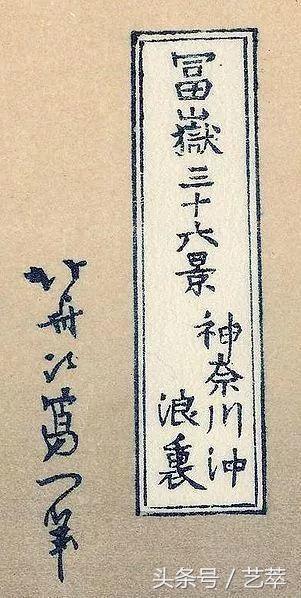 冨嶽三十六景
神奈川沖
浪裏
北斎改為一筆
头条号 / 艺萃